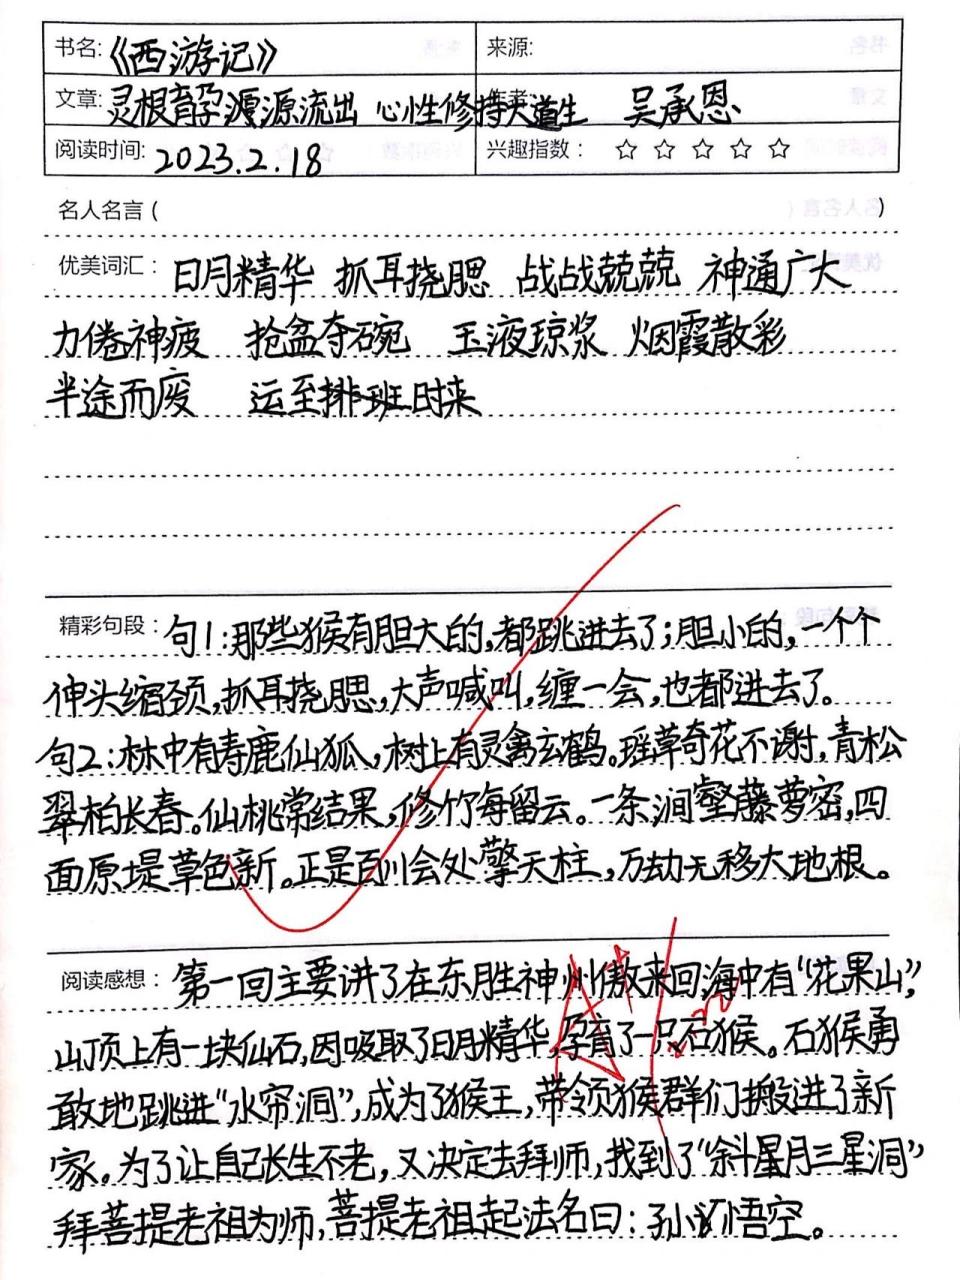 书名:《西游记》 来源:
文章:灵根育孕源源流出 心性修持大道生 作者: 吴承恩
阅读时间: 2023.2.18 兴趣指数: ☆ ☆ ☆ ☆ ☆
名人名言( )
优美词汇: 日月精华 抓耳挠腮 战战兢兢 神通广大
力倦神疲 抢盆夺碗 玉液琼浆 烟霞散彩
半途而废 运至排班时来
精彩句段: 句1:那些猴有胆大的,都跳进去了;胆小的,一个个
伸头缩颈,抓耳挠腮,大声喊叫,缠一会,也都进去了。
句2:林中有寿鹿仙狐,树上有灵禽玄鹤。瑶草奇花不谢,青松
翠柏长春。仙桃常结果,修竹每留云。一条涧壑藤萝密,四
面原堤草色新。正是百川会处擎天柱,万劫无移大地根。
阅读感想: 第一回主要讲了在东胜神州傲来回海中有“花果山”,
山顶上有一块仙石,因吸取了日月精华,孕育了一只石猴。石猴勇
敢地跳进“水帘洞”,成为了猴王,带领猴群们搬进了新
家。为了让自己长生不老,又决定去拜师,找到了“斜星月三星洞”
拜菩提老祖为师,菩提老祖起法名曰:孙悟空。
A++